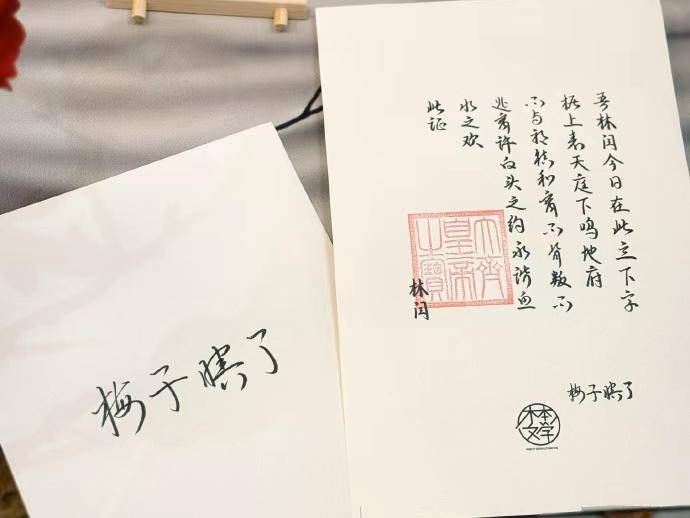 吾林闫今日在此立下字
据上表天庭下鸣地府
不与和离不背叛不
逃离许白头之约永谐鱼
水之欢
此证
大齊
皇帝
之寶
林闫
梅子瞎了
木本
文学
梅子瞎了